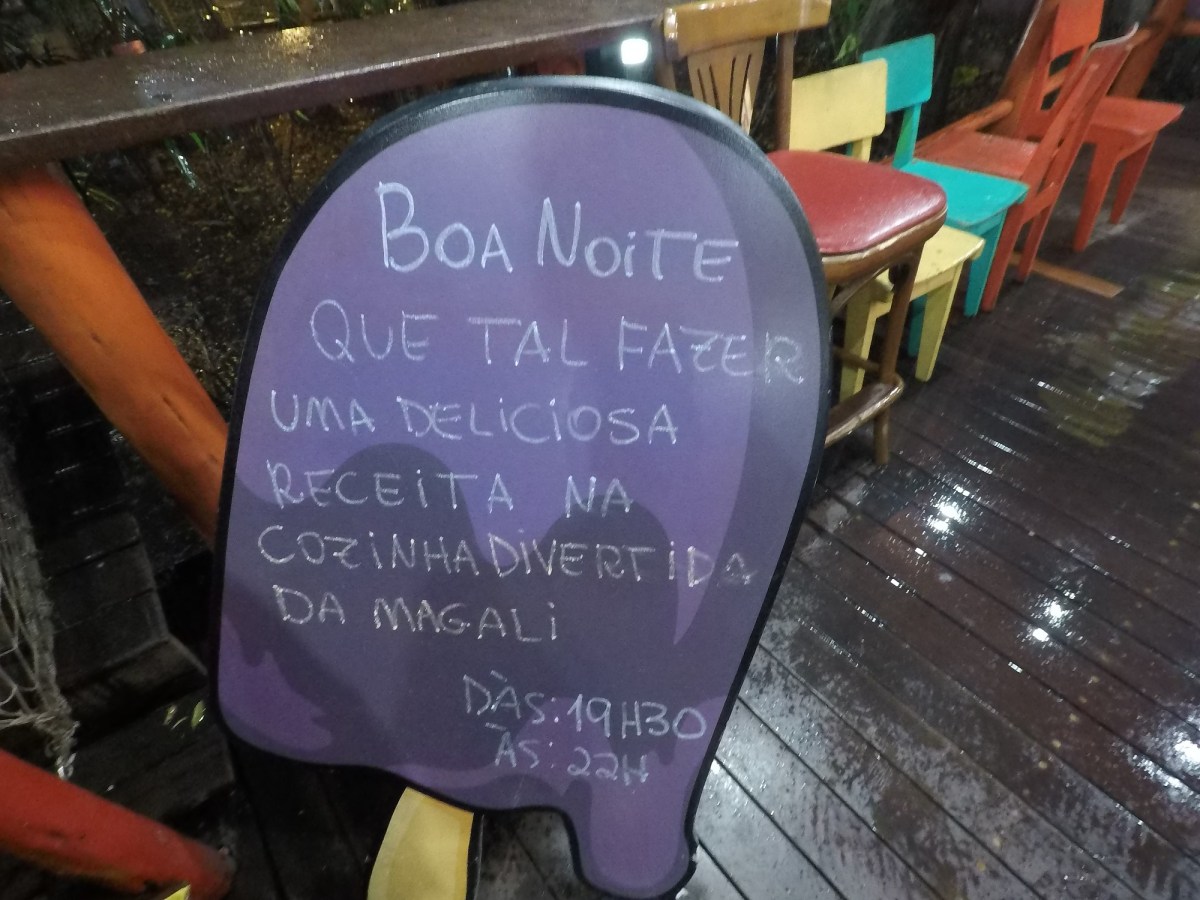 BOA NOiTE
QUE TAL FAZER
UMA DELiCiOSA
RECEiTA NA
COZiNHA DiVERTiDA
DA MAGALi
DÀS: 19H30
ÀS: 22H